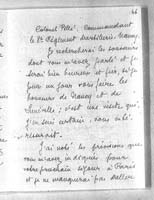 46
Colonel Pellé, Commandant
le 8e Régiment d'artillerie, Nancy.
Je rechercherai les personnes
dont vous m'avez parlé et je
serai bien heureux et fier, si je
puis un jour vous faire les
honneurs de Nancy et de
Lunéville ; c'est une visite qui,
j'en suis certain, vous
J'ai noté les prénoms que
vous m'avez indiqués pour
votre prochain séjour à Paris
et je ne manquerai pas d'aller